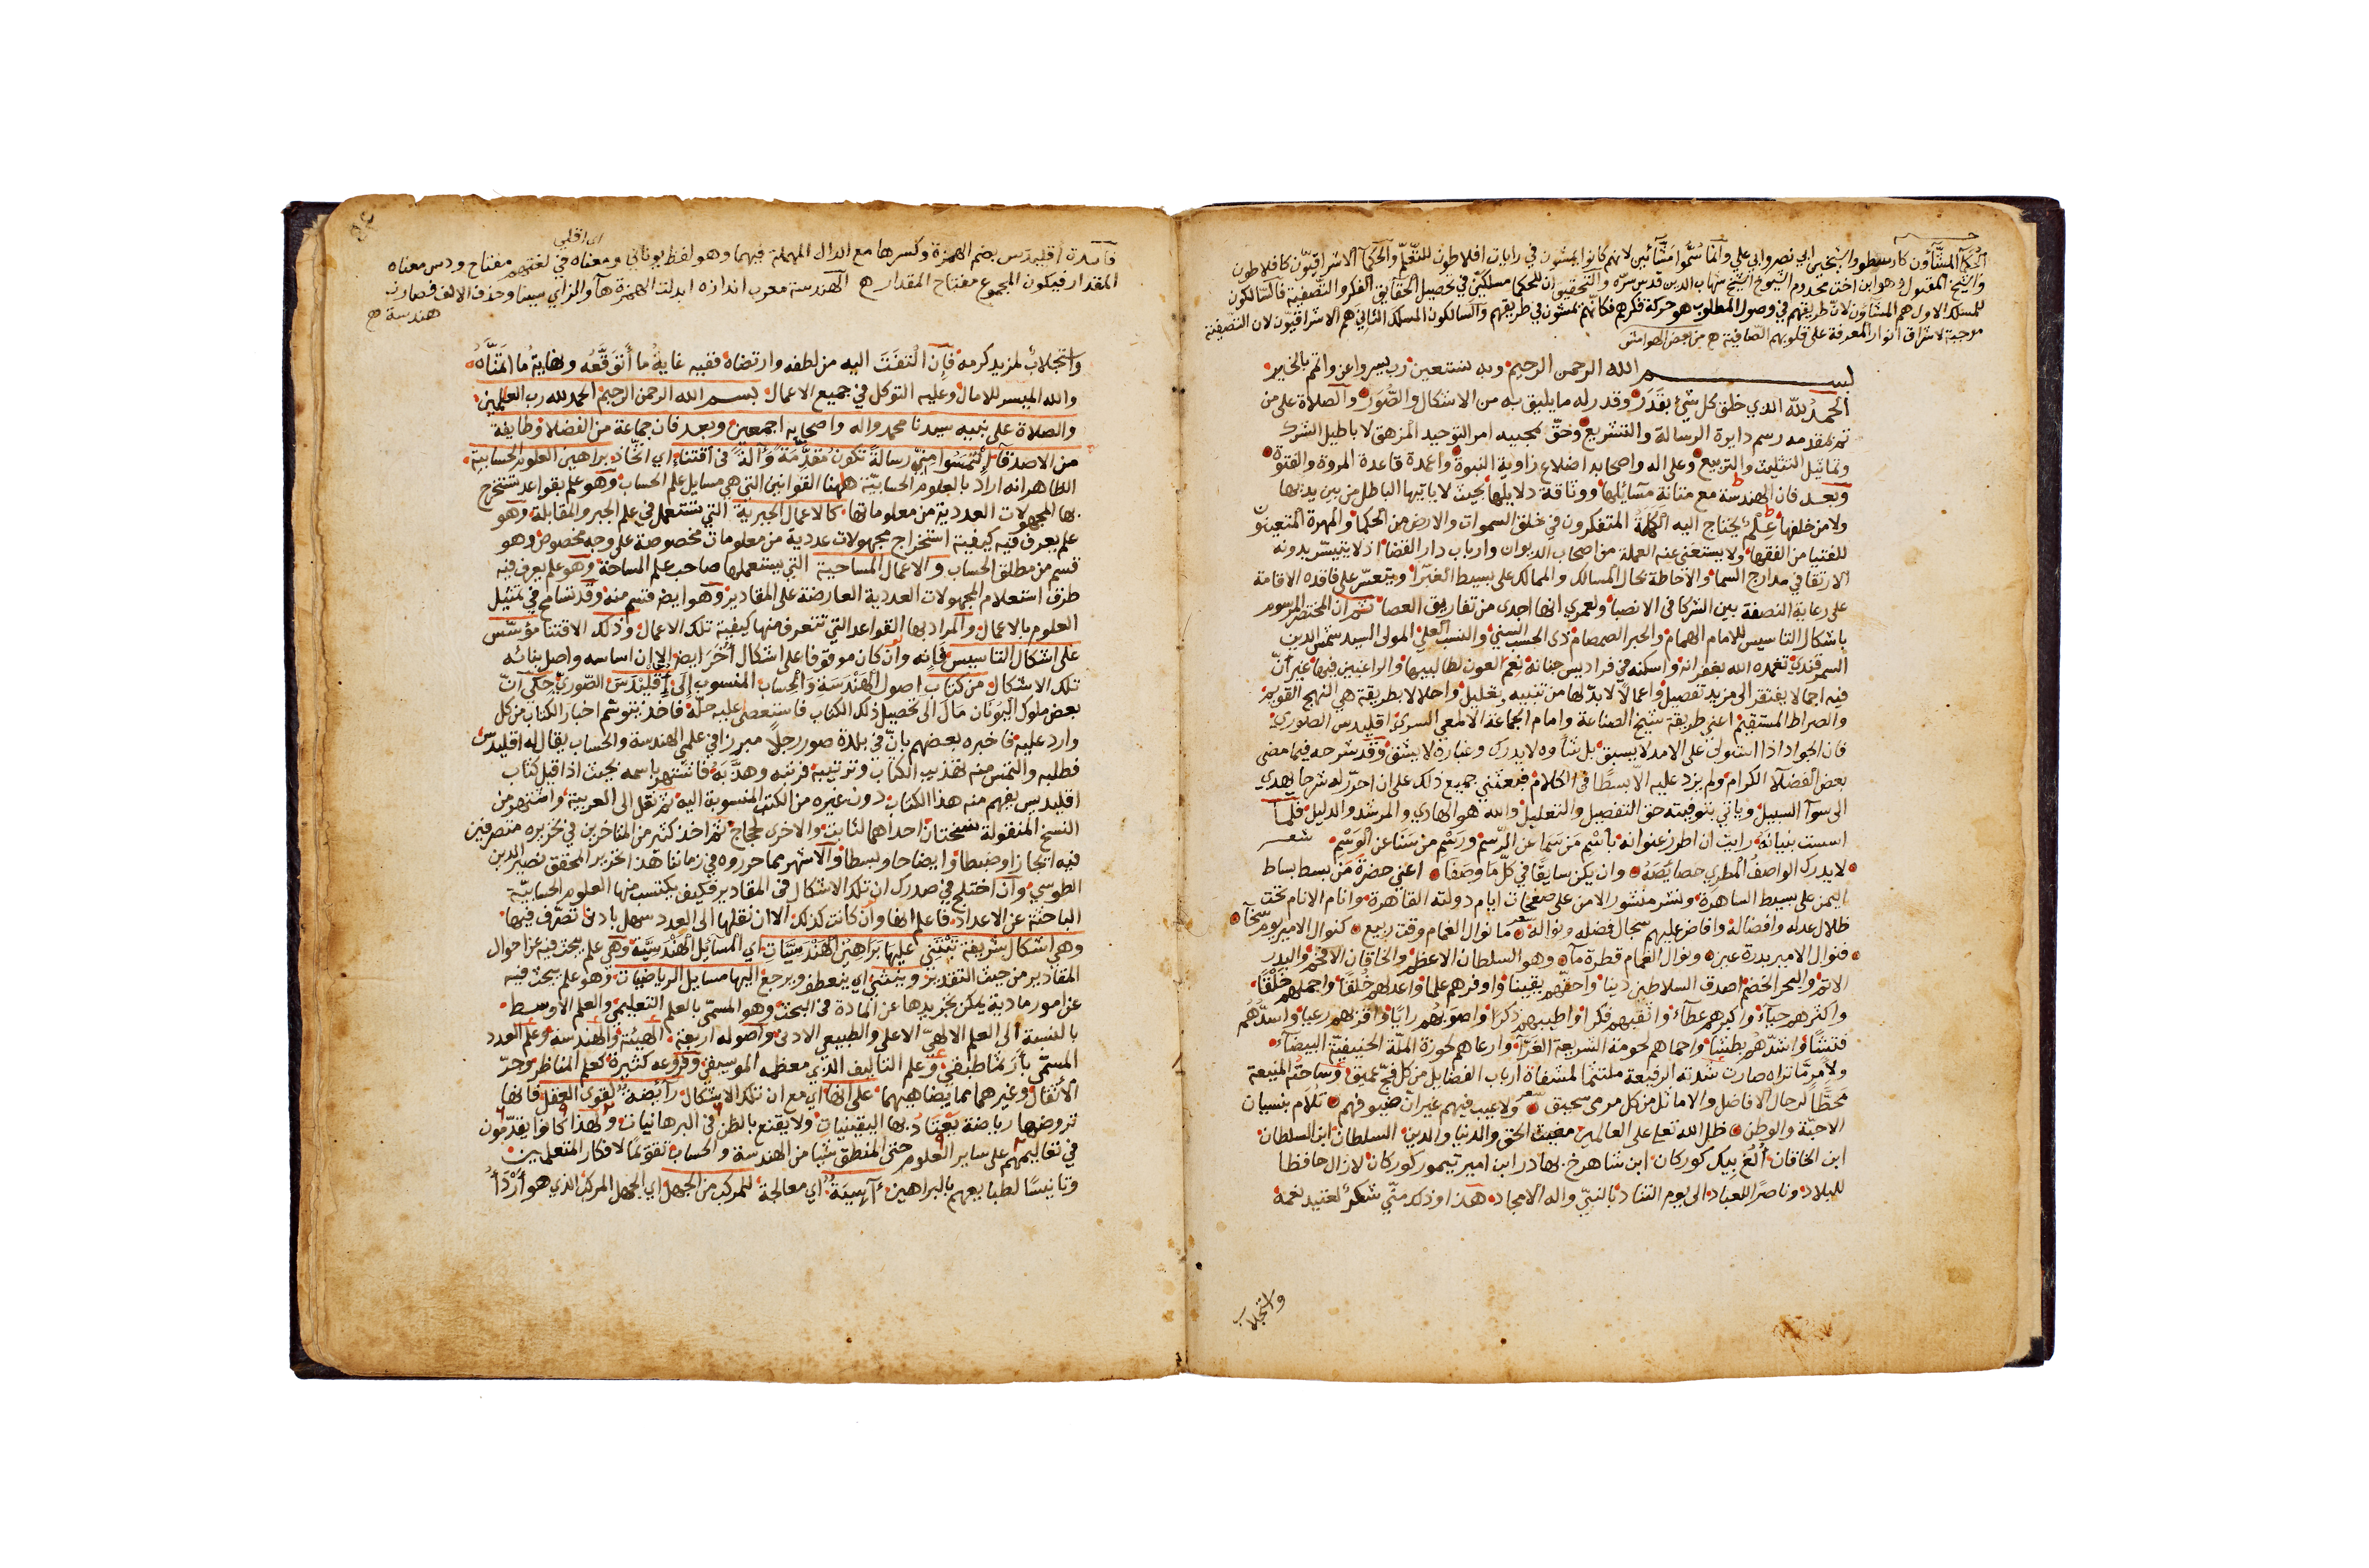 الحكما المشاؤن كارسطو والشيخين ابي نصر وابي علي وانما سموا مشائين لانهم كانوا يمشون في رايات افلاطون للتعلم والحكما الاشراقيون كافلاطون
والشيخ المقتول وهو ابن اخت مخدوم الشيوخ الشيخ شهاب الدين قدس سره والتحقيق ان للحكما مسلكين في تحصيل الحقايق الفكر والتصفية فالسالكون
للمسلك الاول هم المشاؤن لان طريقهم في وصول المطلوب هو حركة فكرهم فكانهم يمشون في طريقهم والسالكون المسلك الثاني هم الاشراقيون لان التصفية
موجبة لاشراق انوار المعرفة على قلوبهم الصافية ح من بعض الهوامش
بسم الله الرحمن الرحيم وبه نستعين رب يسر واعن واتمم بالخير
الحمد لله الذي خلق كل شئ بقدر وقدر له ما يليق به من الاشكال والصور والصلاة على من
تم بمقدمه رسم دايرة الرسالة والتشريع وحق بمجيبه امر التوحيد المزهق لاباطيل الشرك
وتماثيل التثليث والتربيع وعلى اله واصحابه اضلاع زاوية النبوة واعمدة قاعدة المروة والفتوة
وبعد فان الهندسة مع متانة مسائلها ووثاقة دلايلها بحيث لا ياتيها الباطل من بين يديها
ولا من خلفها علم يحتاج اليه الكملة المتفكرون في خلق السموات والارض من الحكما والمهرة المتعينون
للفتيا من الفقها ولا يستغنى عنه العملة من اصحاب الديوان وارباب دار القضا اذ لا يتيسر بدونه
الارتقا في مدارج السما والاحاطة بحال المسالك والممالك على بسيط الغبرا ويتعسر على فاقده الاقامة
على رعاية النصفة بين الشركا في الانصبا ولعمري انها اجدى من تفاريق العصا ثم ان المختصر الموسوم
باشكال التاسيس للامام الهمام والحبر الصمصام ذى الحسب السني والنسب العلي المولى السيد شمس الدين
السمرقندي تغمده الله بغفرانه واسكنه في فراديس جنانه نعم العون لطالبيها والراغبين فيها غير ان
فيه اجمالا يفتقر الى مزيد تفصيل واعمالا لا بد لها من تنبيه وتعليل واحلالا بطريقة هي النهج القويم
والصراط المستقيم اعني طريقة شيخ الصناعة وامام الجماعة الالمعي السري اقليدس الصوري
فان الجواد اذا استولى على الامد لا يسبق بل شأوه لا يدرك وغباره لا يشق وقد شرحه فيما مضى
بعض الفضلا الكرام ولم يزد عليه الا بسطا في الكلام فبعثني جميع ذلك على ان احرر له شرحا يهدي
الى سوآ السبيل وياتي بتوفيته حق التفصيل والتعليل والله هو الهادي والمرشد والدليل فلما
اسست بنيانه رايت ان اطرز عنوانه باسم من سما عن الرسم ورسم من سنا عن الوسم شعر
لا يدرك الواصف المطري خصايصه وان يكن سابقا في كل ما وصفا اعني حضرة من بسط بساط
اليمن على بسيط الساهرة ونشر منشور الامن على صفحات ايام دولته القاهرة وانام الانام تحت
ظلال عدله وافضاله وافاض عليهم سجال فضله ونواله شعر ما نوال الغمام وقت ربيع كنوال الامير يوم سخآ
فنوال الامير بدرة عين ونوال الغمام قطرة مآ وهو السلطان الاعظم والخاقان الافخم والبدر
الاتم والبحر الخضم اصدق السلاطين دينا واحقهم يقينا واوفرهم علما واعدلهم خلقا واجملهم خلقا
واكثرهم حياء واكبرهم عطآء واثقبهم فكرا واطيبهم ذكرا واصوبهم رايا وارقبهم رعيا واسدهم
واشدهم بطشا واحماهم لحومة الشريعة الغرآ وارعاهم لحوزة الملة الحنيفية البيضآء
ولامر ما تراه صارت سدته الرفيعة ملتثما لمشفاه ارباب الفضايل من كل فج عميق وساحته المنيعة
محطا لرحال الافاضل والاماثل من كل مرمى سحيق شعر ولا عيب فيهم غير ان ضيوفهم تلام بنسيان
الاحبة والوطن ظل الله تعلى على العالمين مغيث الحق والدنيا والدين السلطان ابن السلطان
ابن الخاقان الغ بيك كوركان ابن شاهرخ بهادر ابن امير تيمور كوركان لازال حافظا
للبلاد وناصرا للعباد الى يوم التناد بالنبي واله الامجاد هذا وذلك مني شكر لعتيد نعمه
واستجلاب
فآئدة اقليدس بضم الهمزة وكسرها مع الدال المهملة فيهما وهو لفظ يوناني ومعناه في لغتهم مفتاح ودس معناه
اى اقلى
المقدار فيكون المجموع مفتاح المقدار ح الهندسة معرب اندازه ابدلت الهمزة هآ والزاي سينا وحذف الالف فصارت
هندسة ح
واستجلاب لمزيد كرمه فان التفت اليه من لطفه وارتضاه ففيه غاية ما اتوقعه ونهاية ما اتمناه
والله الميسر للامال وعليه التوكل في جميع الاعمال بسم الله الرحمن الرحيم الحمد لله رب العلمين
والصلاة على نبيه سيدنا محمد واله واصحابه اجمعين وبعد فان جماعة من الفضلا وطايفة
من الاصدقآء التمسوا مني رسالة تكون مقدمة وآلة في اقتناء اي اتخاذ براهين العلوم الحسابية
الظاهر انه اراد بالعلوم الحسابية ههنا القوانين التي هي مسايل علم الحساب وهو علم بقواعد تستخرج
بها المجهولات العددية من معلوماتها كالاعمال الجبرية التي تستعمل في علم الجبر والمقابلة وهو
علم يعرف فيه كيفية استخراج مجهولات عددية من معلومات مخصوصة على وجه مخصوص وهو
قسم من مطلق الحساب والاعمال المساحية التي يستعملها صاحب علم المساحة وهو علم يعرف فيه
طرق استعلام المجهولات العددية العارضة على المقادير وهو ايضا قسم منه وقد تسامح في تمثيل
العلوم بالاعمال والمراد بها القواعد التي تتعرف منها كيفية تلك الاعمال وذلك الاقتنا مؤسس
على اشكال التاسيس فانه وان كان موقوفا على اشكال أخر ايضا الا ان اساسه واصل بنائه
تلك الاشكال من كتاب اصول الهندسة والحساب المنسوب الى اقليدس الصوري حكى ان
بعض ملوك اليونان مال الى تحصيل ذلك الكتاب فاستعصى عليه حله فاخذ يتوسم اخبار الكتاب من كل
وارد عليه فاخبره بعضهم بان في بلدة صور رجلا مبرزا في علمي الهندسة والحساب يقال له اقليدس
فطلبه والتمس منه تهذيب الكتاب وترتيبه فرتبه وهذبه فاشتهر باسمه بحيث اذا قيل كتاب
اقليدس يفهم منه هذا الكتاب دون غيره من الكتب المنسوبة اليه ثم نقل الى العربية واشتهر من
النسخ المنقولة نسختان احداهما لثابت والاخرى لحجاج ثم اخذ كثير من المتاخرين في تحريره متصرفين
فيه ايجازا وضبطا وايضاحا وبسطا والاشهر مما حرروه في زماننا هذا تحرير المحقق نصير الدين
الطوسي وان اختلج في صدرك ان تلك الاشكال في المقادير فكيف يكتسب منها العلوم الحسابية
الباحثة عن الاعداد فاعلم انها وان كانت كذلك الا ان نقلها الى العدد سهل بادنى تصرف فيها
وهي اشكال شريفة تبتني عليها براهين الهندسيات اي المسائل الهندسية وهي علم يبحث فيه عن احوال
المقادير من حيث التقدير وينثني اي ينعطف ويرجع اليها مسايل الرياضيات وهو علم يبحث فيه
عن امور مادية يمكن تجريدها عن المادة في البحث وهو المسمى بالعلم التعليمي والعلم الاوسط
بالنسبة الى العلم الالهي الاعلى والطبيعي الادنى واصوله اربعة الهيئة والهندسة وعلم العدد
المسمى بارثماطيقي وعلم التاليف الذي معظمه الموسيقى وفروعه كثيرة كعلم المناظر وجر
الاثقال وغيرهما مما يضاهيهما على انها اي مع ان تلك الاشكال رائضة لقوى العقل فانها
تروضها رياضة يعتاد بها اليقينيات ولا يقنع بالظن في البرهانيات ولهذا كانوا يقدمون
في تعاليمهم على ساير العلوم حتى المنطق شيا من الهندسة والحساب تقويما لافكار المتعلمين
وتانيسا لطبايعهم بالبراهين آسية اي معالجة للمركب من الجهل اي الجهل المركب الذي هو اردأ